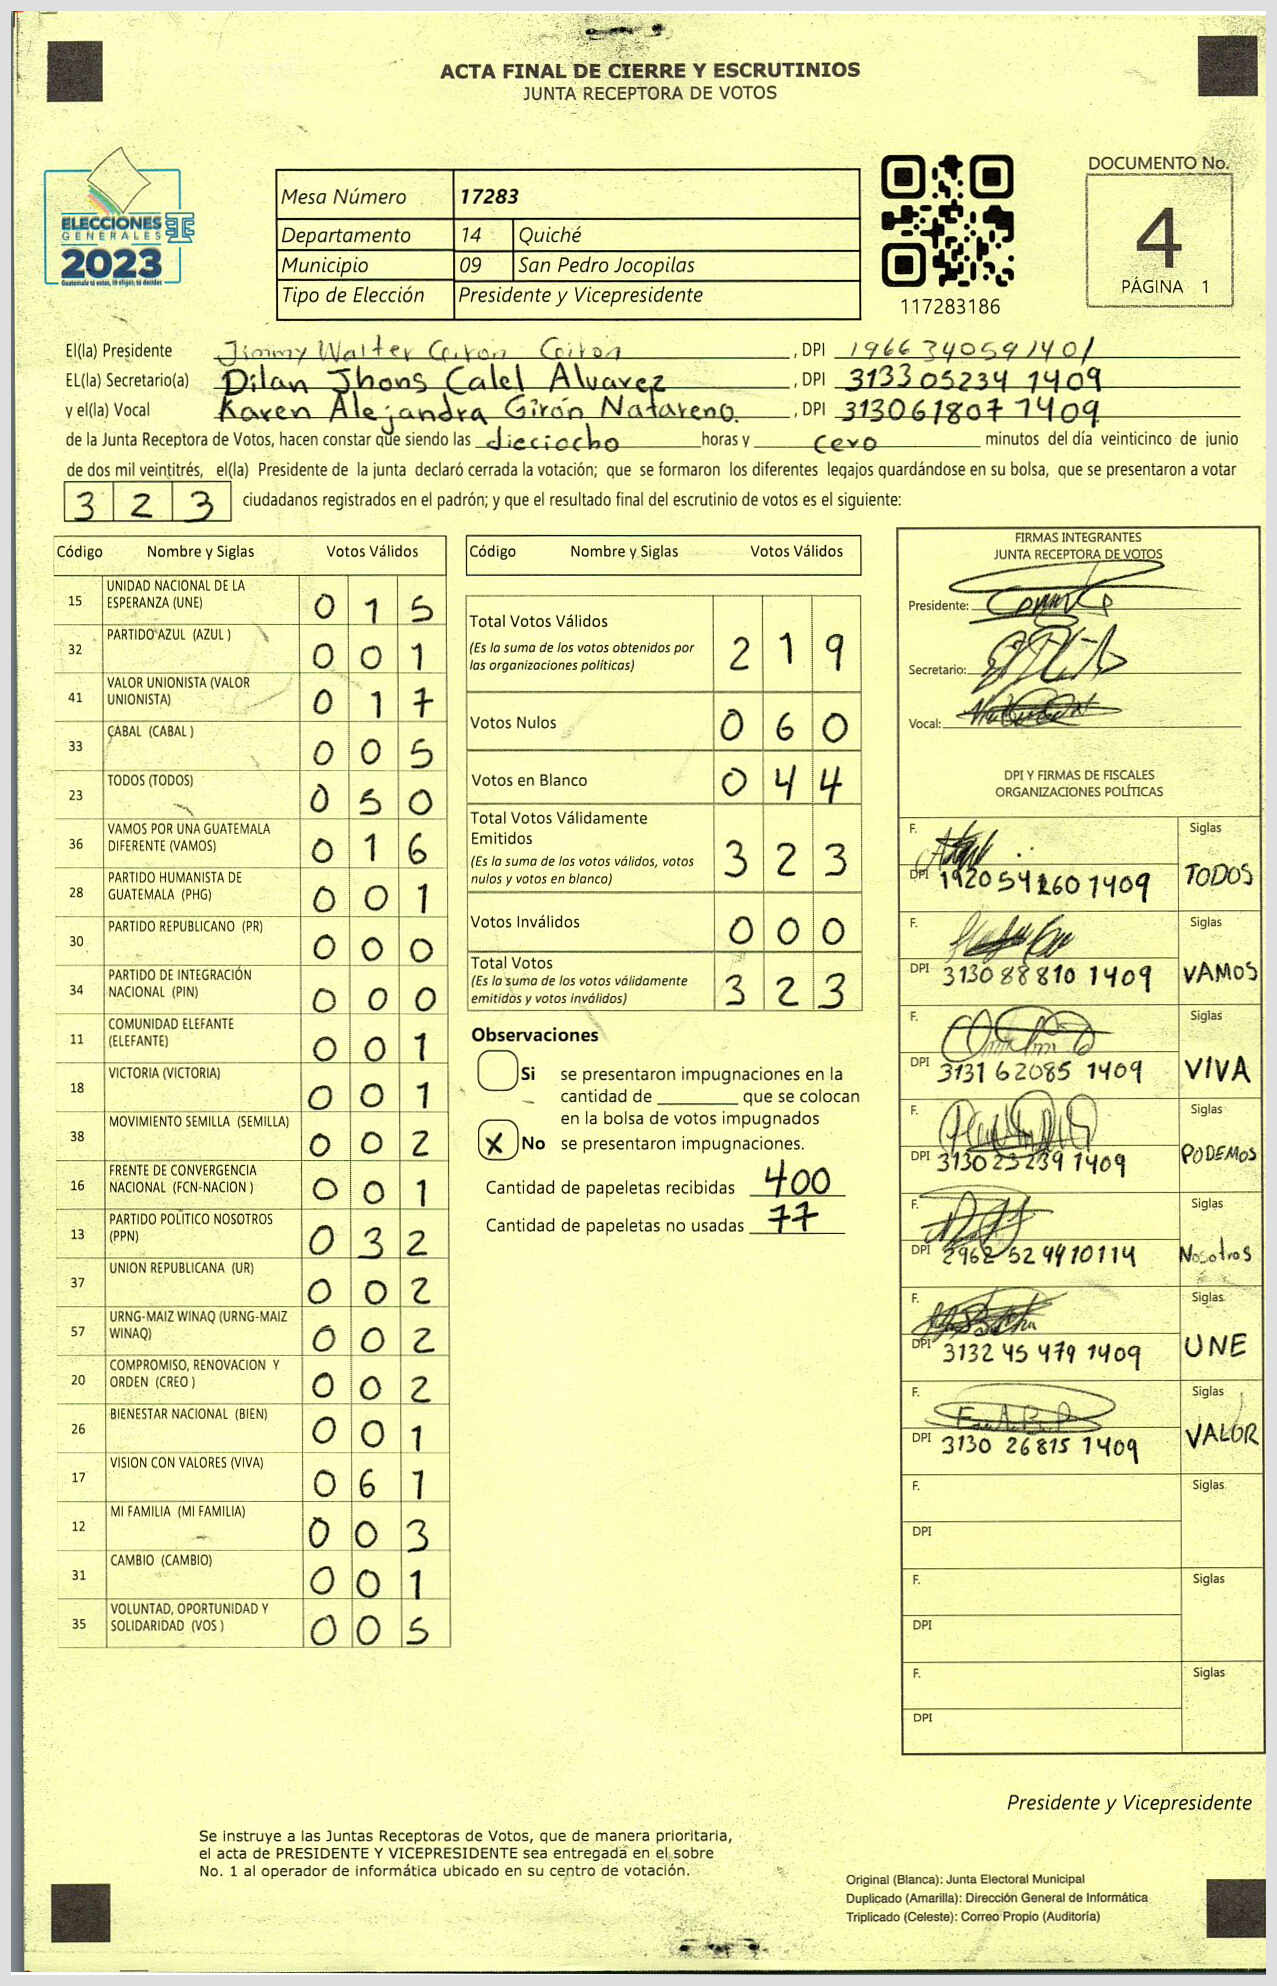 ACTA FINAL DE CIERRE Y ESCRUTINIOS
JUNTA RECEPTORA DE VOTOS
ELECCIONES
GENERALES
2023
Guatemala tú estás, tú eliges, tú decides
Mesa Número 17283
Departamento 14 Quiché
Municipio 09 San Pedro Jocopilas
Tipo de Elección Presidente y Vicepresidente
117283186
DOCUMENTO No.
4
PÁGINA 1
El(la) Presidente Jimmy Walter , DPI 1966340591401
EL(la) Secretario(a) Dilan Jhons Calel Alvarez , DPI 3133 05234 1409
y el(la) Vocal Karen Alejandra Girón Natareno. , DPI 313061807 1409
de la Junta Receptora de Votos, hacen constar que siendo las dieciocho horas y cero minutos del día veinticinco de junio
de dos mil veintitrés, el(la) Presidente de la junta declaró cerrada la votación; que se formaron los diferentes legajos quardándose en su bolsa, que se presentaron a votar
3 2 3 ciudadanos registrados en el padrón; y que el resultado final del escrutinio de votos es el siguiente:
Código Nombre y Siglas Votos Válidos
15 UNIDAD NACIONAL DE LA ESPERANZA (UNE) 0 1 5
32 PARTIDO AZUL (AZUL ) 0 0 1
41 VALOR UNIONISTA (VALOR UNIONISTA) 0 1 7
33 CABAL (CABAL ) 0 0 5
23 TODOS (TODOS) 0 5 0
36 VAMOS POR UNA GUATEMALA DIFERENTE (VAMOS) 0 1 6
28 PARTIDO HUMANISTA DE GUATEMALA (PHG) 0 0 1
30 PARTIDO REPUBLICANO (PR) 0 0 0
34 PARTIDO DE INTEGRACIÓN NACIONAL (PIN) 0 0 0
11 COMUNIDAD ELEFANTE (ELEFANTE) 0 0 1
18 VICTORIA (VICTORIA) 0 0 1
38 MOVIMIENTO SEMILLA (SEMILLA) 0 0 2
16 FRENTE DE CONVERGENCIA NACIONAL (FCN-NACION ) 0 0 1
13 PARTIDO POLÍTICO NOSOTROS (PPN) 0 3 2
37 UNION REPUBLICANA (UR) 0 0 2
57 URNG-MAIZ WINAQ (URNG-MAIZ WINAQ) 0 0 2
20 COMPROMISO, RENOVACION Y ORDEN (CREO ) 0 0 2
26 BIENESTAR NACIONAL (BIEN) 0 0 1
17 VISION CON VALORES (VIVA) 0 6 1
12 MI FAMILIA (MI FAMILIA) 0 0 3
31 CAMBIO (CAMBIO) 0 0 1
35 VOLUNTAD, OPORTUNIDAD Y SOLIDARIDAD (VOS ) 0 0 5
Código Nombre y Siglas Votos Válidos
Total Votos Válidos 2 1 9
(Es la suma de los votos obtenidos por
las organizaciones políticas)
Votos Nulos 0 6 0
Votos en Blanco 0 4 4
Total Votos Válidamente
Emitidos 3 2 3
(Es la suma de los votos válidos, votos
nulos y votos en blanco)
Votos Inválidos 0 0 0
Total Votos 3 2 3
(Es la suma de los votos válidamente
emitidos y votos inválidos)
Observaciones
Si se presentaron impugnaciones en la
cantidad de ________ que se colocan
en la bolsa de votos impugnados
X No se presentaron impugnaciones.
Cantidad de papeletas recibidas 400
Cantidad de papeletas no usadas 77
FIRMAS INTEGRANTES
JUNTA RECEPTORA DE VOTOS
Presidente:
Secretario:
Vocal:
DPI Y FIRMAS DE FISCALES
ORGANIZACIONES POLÍTICAS
F. Siglas
DPI 1409 TODOS
F. Siglas
DPI 3130 88810 1409 VAMOS
F. Siglas
DPI 3131 62085 1409 VIVA
F. Siglas
DPI 3130 23239 1409 PODEMOS
F. Siglas
DPI 2962 52 9910114 Nosotros
F. Siglas
DPI 3132 45 479 1409 UNE
F. Siglas
DPI 3130 26815 1409 VALOR
F. Siglas
DPI
F. Siglas
DPI
F. Siglas
DPI
Presidente y Vicepresidente
Se instruye a las Juntas Receptoras de Votos, que de manera prioritaria,
el acta de PRESIDENTE Y VICEPRESIDENTE sea entregada en el sobre
No. 1 al operador de informática ubicado en su centro de votación.
Original (Blanca): Junta Electoral Municipal
Duplicado (Amarilla): Dirección General de Informática
Triplicado (Celeste): Correo Propio (Auditoría)